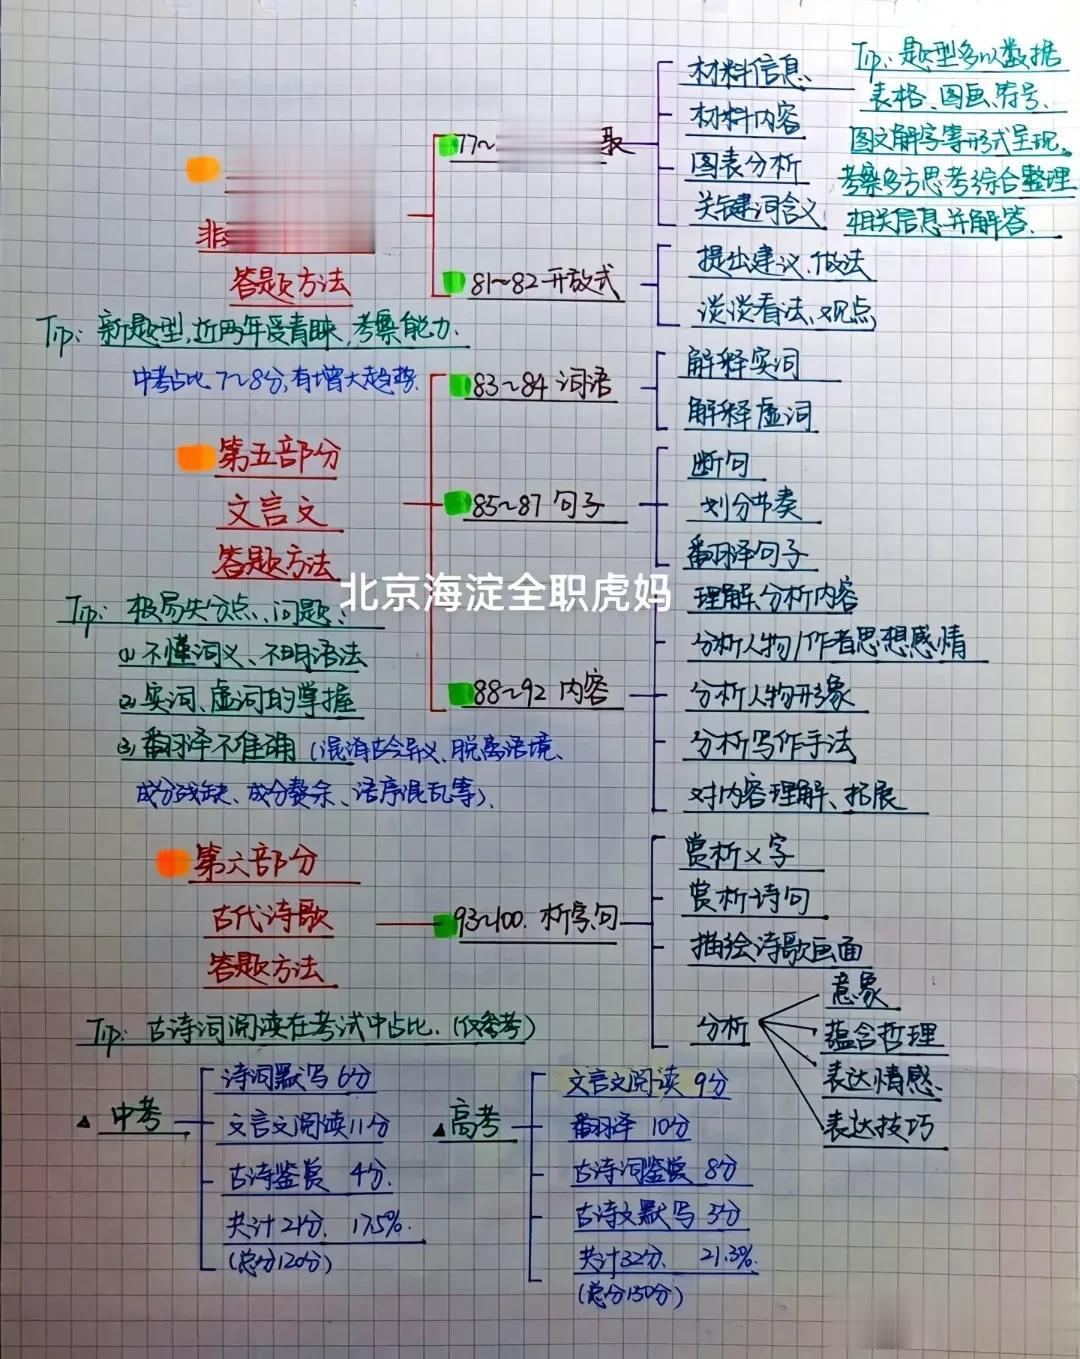 非
答题方法
77~
取
材料信息
材料内容
图表分析
关键词含义
Tip: 题型多以数据
表格、图画、符号、
图文解字等形式呈现。
考察多方思考综合整理
相关信息并解答.
81~82 开放式
提出建议、做法
谈谈看法、观点
Tip: 新题型,近两年受青睐,考察能力.
中考占比 7~8分,有增大趋势.
第五部分
文言文
答题方法
83~84 词语
解释实词
解释虚词
85~87 句子
断句
划分节奏
翻译句子
北京海淀全职虎妈
88~92 内容
理解、分析内容
分析人物/作者思想感情
分析人物形象
分析写作手法
对内容理解、拓展
Tip: 极易失分点、问题:
(1) 不懂词义、不明语法
(2) 实词、虚词的掌握
(3) 翻译不准确 (混淆古今异义、脱离语境、
成分残缺、成分赘余、语序混乱等).
第六部分
古代诗歌
答题方法
93~100. 析字、句
赏析义字
赏析诗句
描绘诗歌画面
分析
意象
蕴含哲理
表达情感.
表达技巧
Tip: 古诗词阅读在考试中占比. (仅参考)
▲ 中考
诗词默写 6分
文言文阅读 11分
古诗鉴赏 4分.
共计21分. 17.5%.
(总分120分)
▲ 高考
文言文阅读 9分
翻译 10分
古诗词鉴赏 8分
古诗文默写 3分
共计32分. 21.3%.
(总分150分)